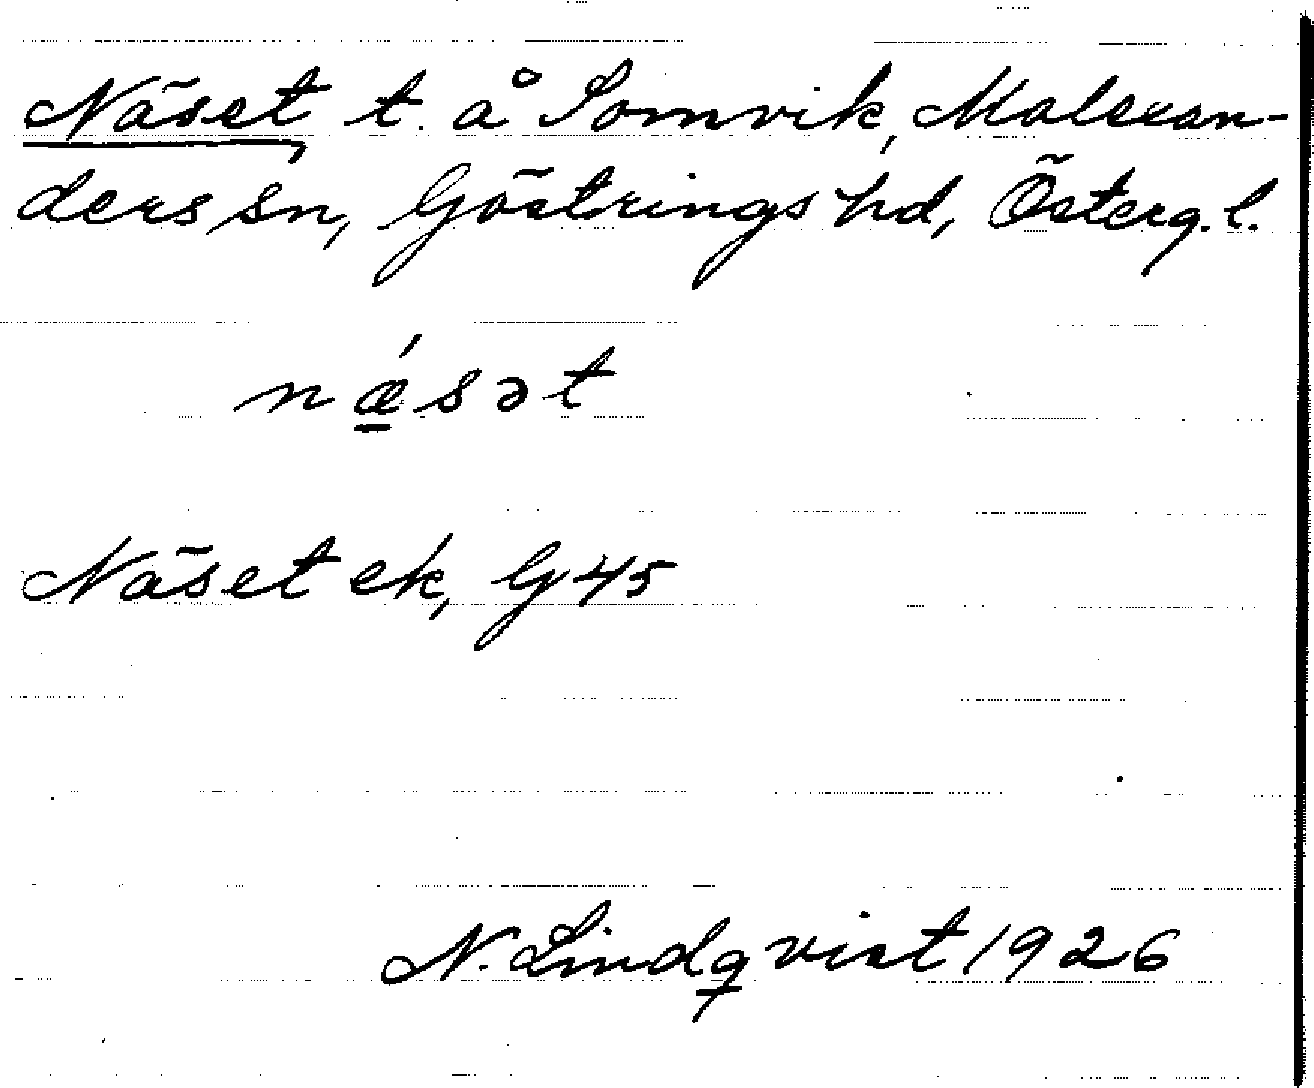 Näset t. å Somvik, Malexan-
ders sn, Göstrings hd, Österg. l.
nǽ̲sət
Näset ek, G 45
N. Lindqvist 1926